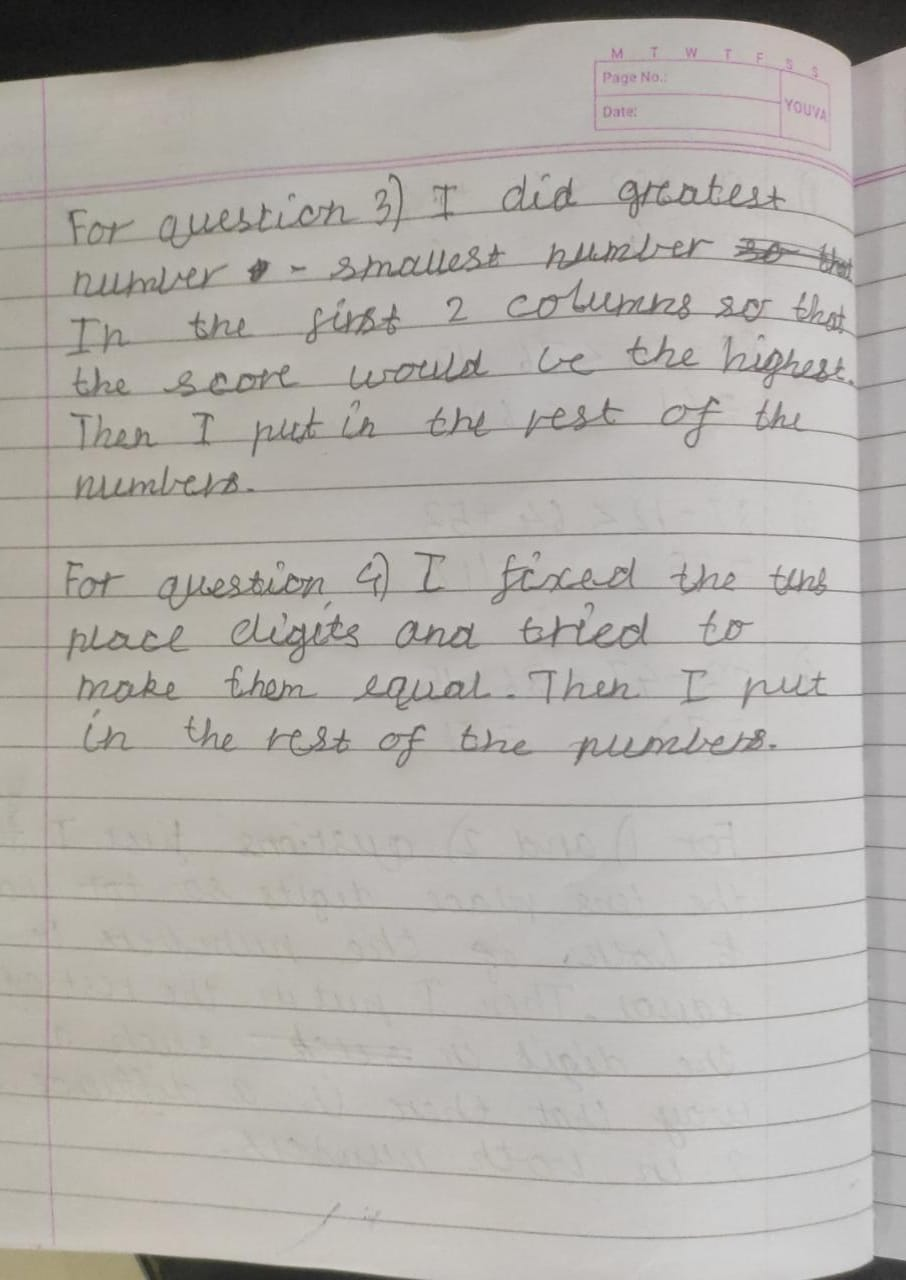 M T W T F S S
Page No.:
YOUVA
Date:
For question 3) I did greatest
number - smallest number so that
In the first 2 columns so that
the score would be the highest.
Then I put in the rest of the
numbers.
For question 4) I fixed the tens
place digits and tried to
make them equal. Then I put
in the rest of the numbers.